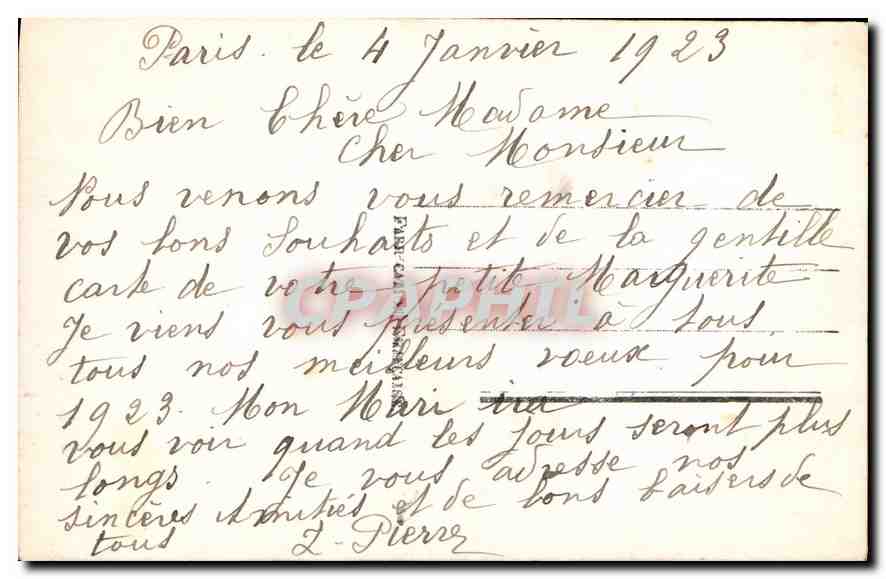 Paris. le 4 Janvier 1923
Bien Chère Madame
Cher Monsieur
Nous venons vous remercier de
vos bons souhaits et de la gentille
carte de votre petite Marguerite
Je viens vous présenter à tous
tous nos meilleurs voeux pour
1923. Mon Mari ira
vous voir quand les jours seront plus
longs. Je vous adresse nos
sincères Amitiés et de bons baisers de
tous
Pierre
CPAPHIL